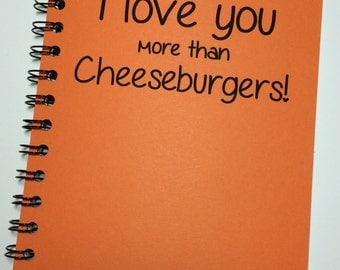 I love you
More than
Cheeseburgers!